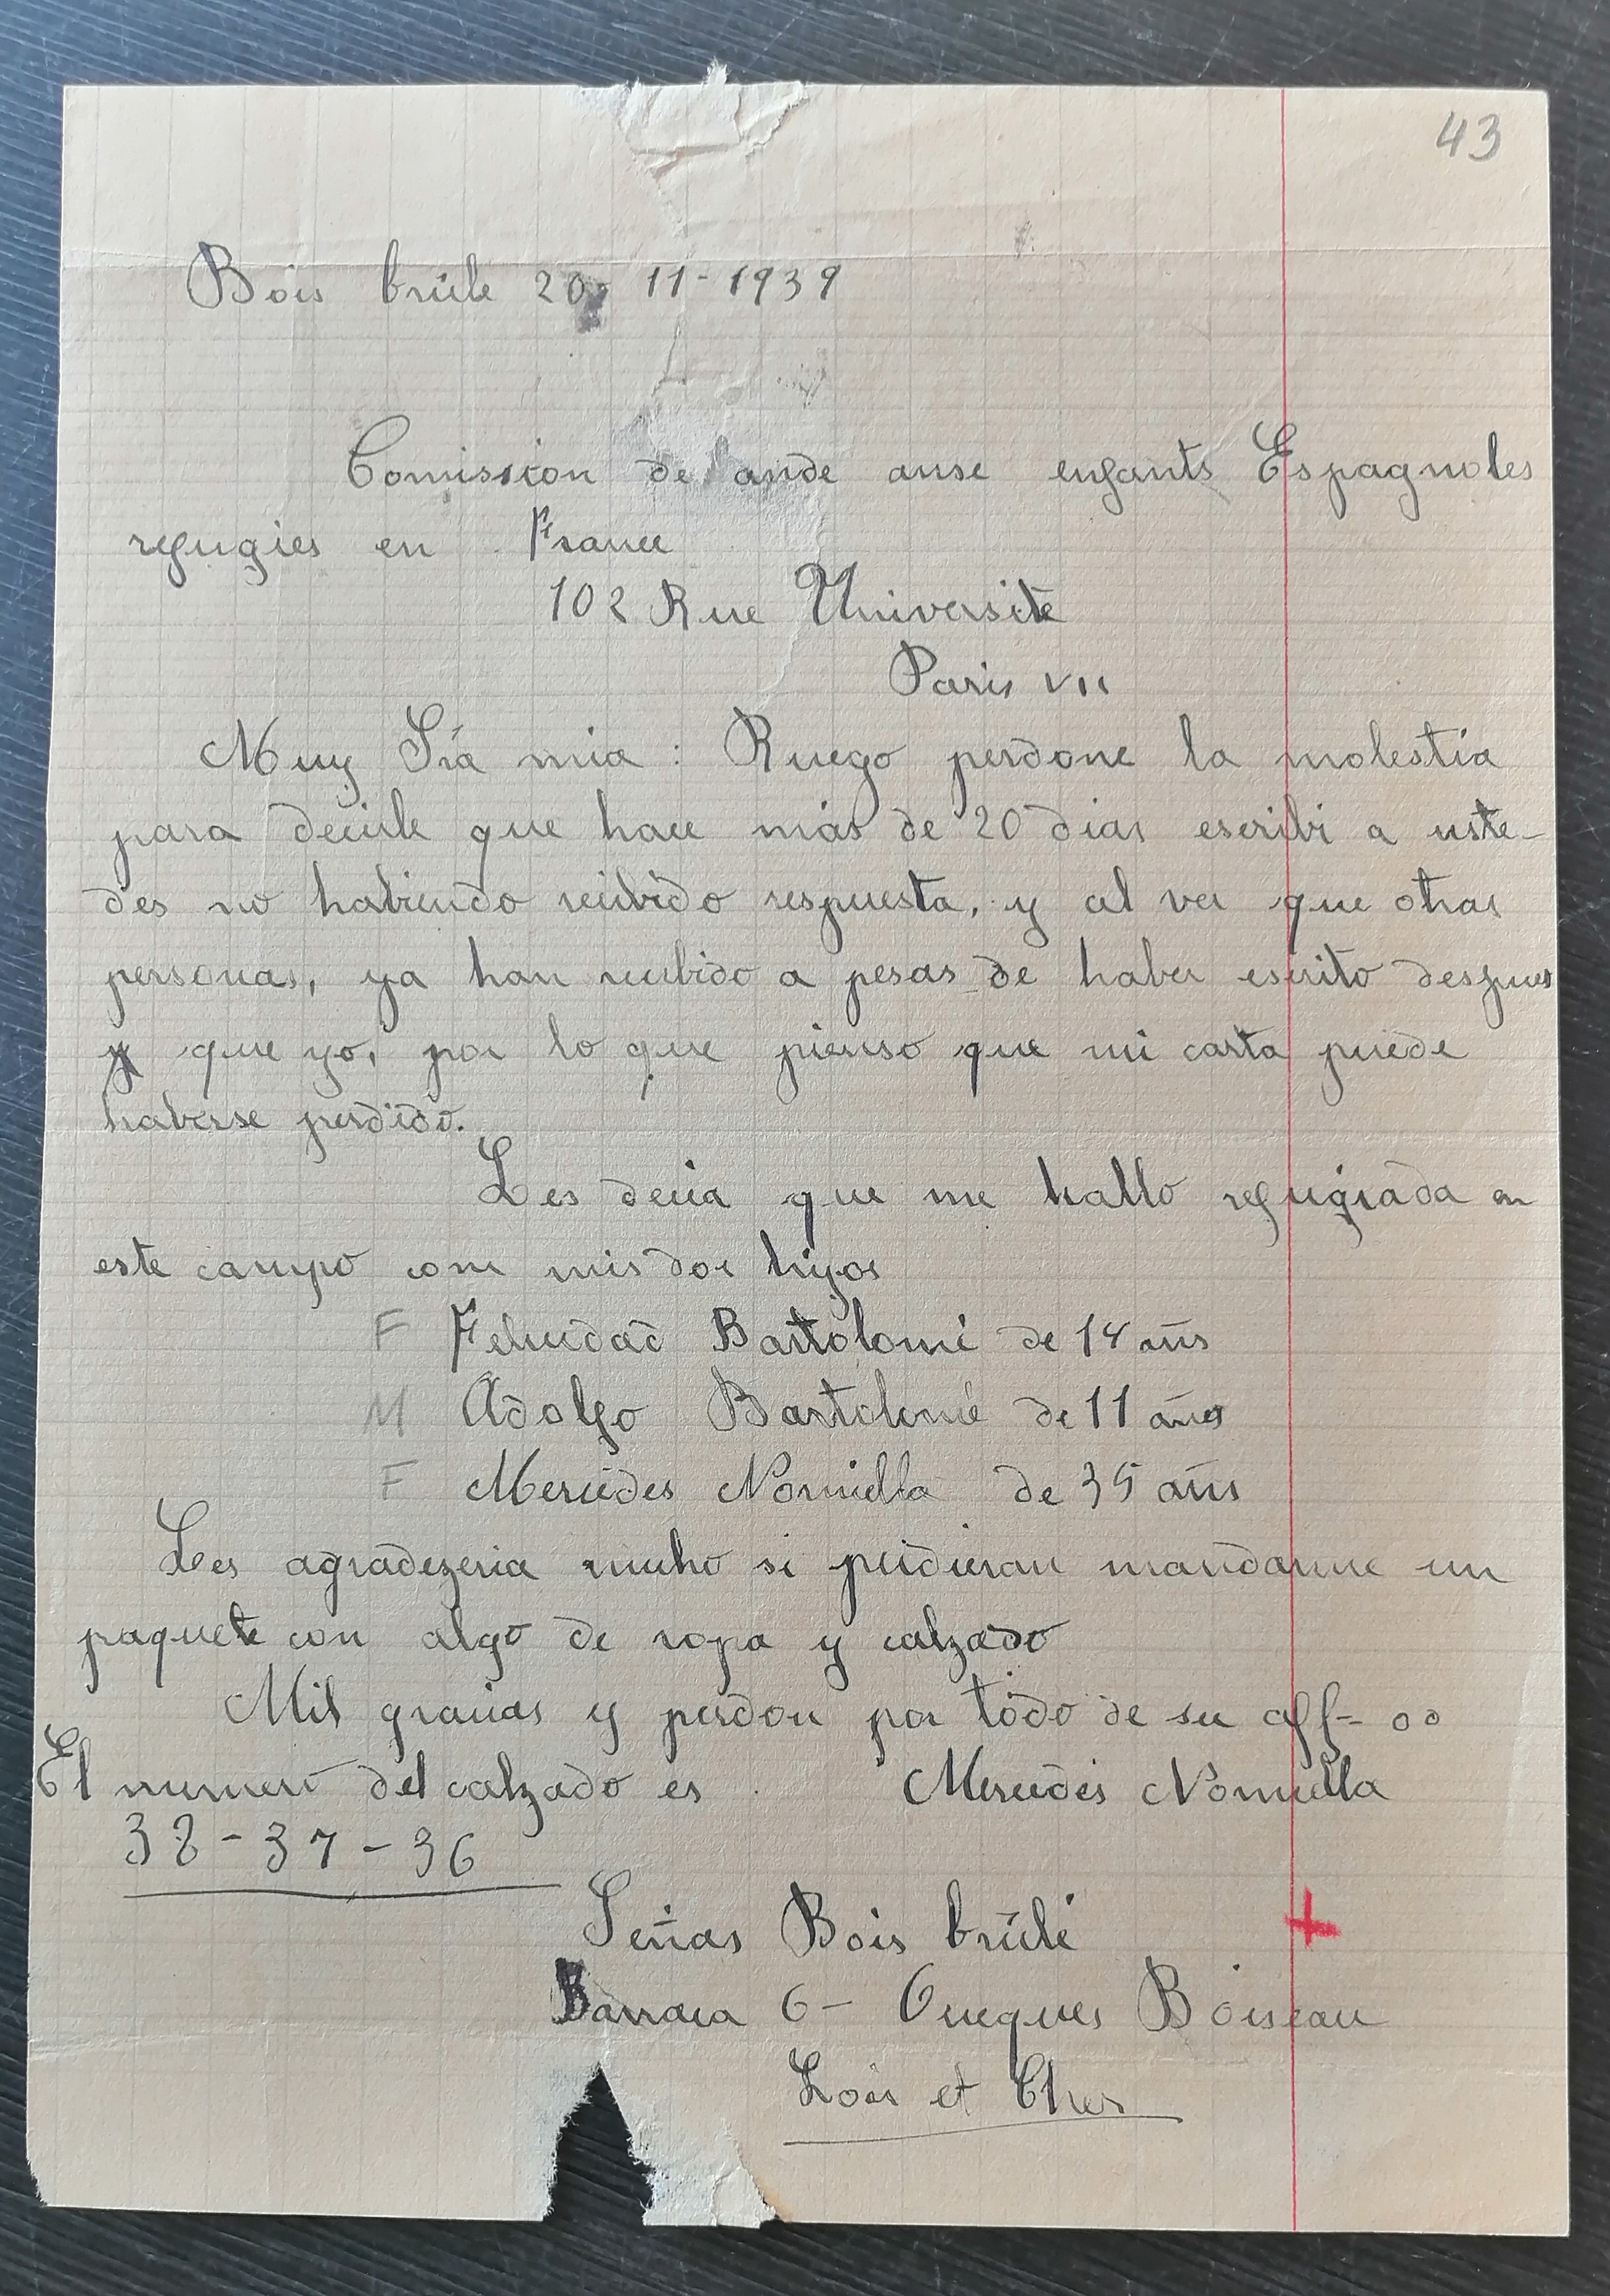 43
Bois brûle 20, 11-1939
Comission de ande anse enfants Espagnoles
refugies en France
102 Rue Universite
Paris VII
Muy Sra mia : Ruego perdone la molestia
para decirle que hace más de 20 dias escribi a uste-
des no habiendo recibido respuesta, y al ver que otras
personas, ya han recibido a pesar de haber escrito despues
que yo, por lo que pienso que mi carta puede
haberse perdido.
Les decia que me hallo refugiada en
este campo com mis dos hijos
F Felicidad Bartolomé de 14 años
M Adolfo Bartolomé de 11 años
F Mercedes de 35 años
Les agradezeria mucho si pudieran mandarme un
paquete con algo de ropa y calzado
Mil gracias y perdon por todo de su aff- oo
El numero del calzado es Mercedes
38-37-36
Señas Bois brûlé
Barraca 6- Boiseau
Loir et Cher